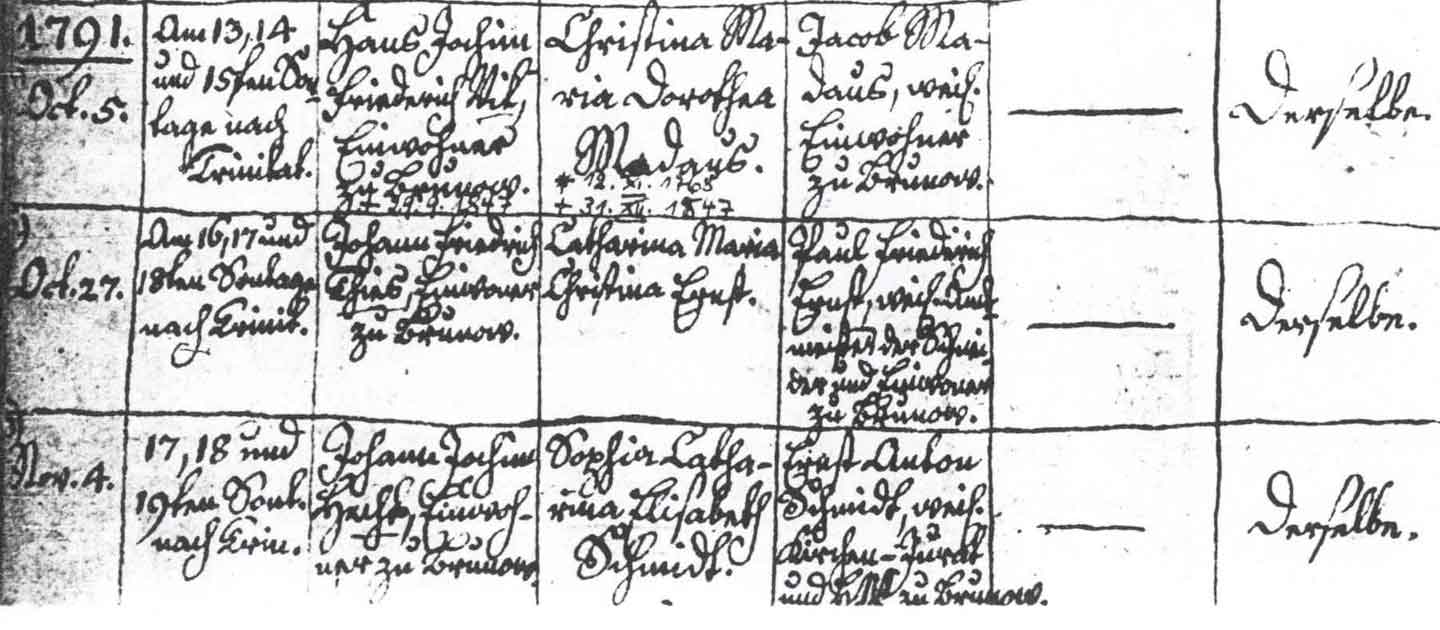 1791.
Oct. 5.
Am 13, 14
und 15ten Son-
tage nach
Trinitat.
Hans Jochim
Friederich
Einwohner
zu Brunow.
Christina Ma-
ria Dorothea
Madaus.
* 12. XI. 1768
+ 31. XII. 1847
Jacob Ma-
daus, weil.
Einwohner
zu Brunow.
Derselbe.
Oct. 27.
Am 16, 17 und
18ten Sontage
nach Trinit.
Johann Friedrich
Thies, Einwoner
zu Brunow.
Catharina Maria
Christina Ernst.
Paul Friederich
Ernst, weil. Amts
meister der Schnei
der und Einwoner
zu Brunow.
Derselbe.
Nov. 4.
17, 18 und
19ten Sont.
nach Trin.
Johann Jochim
Hecht, Einwoh-
ner zu Brunow
Sophia Catha-
rina Elisabeth
Schmidt.
Ernst Anton
Schmidt, weil.
Kirchen-Jurat
und zu Brunow.
Derselbe.